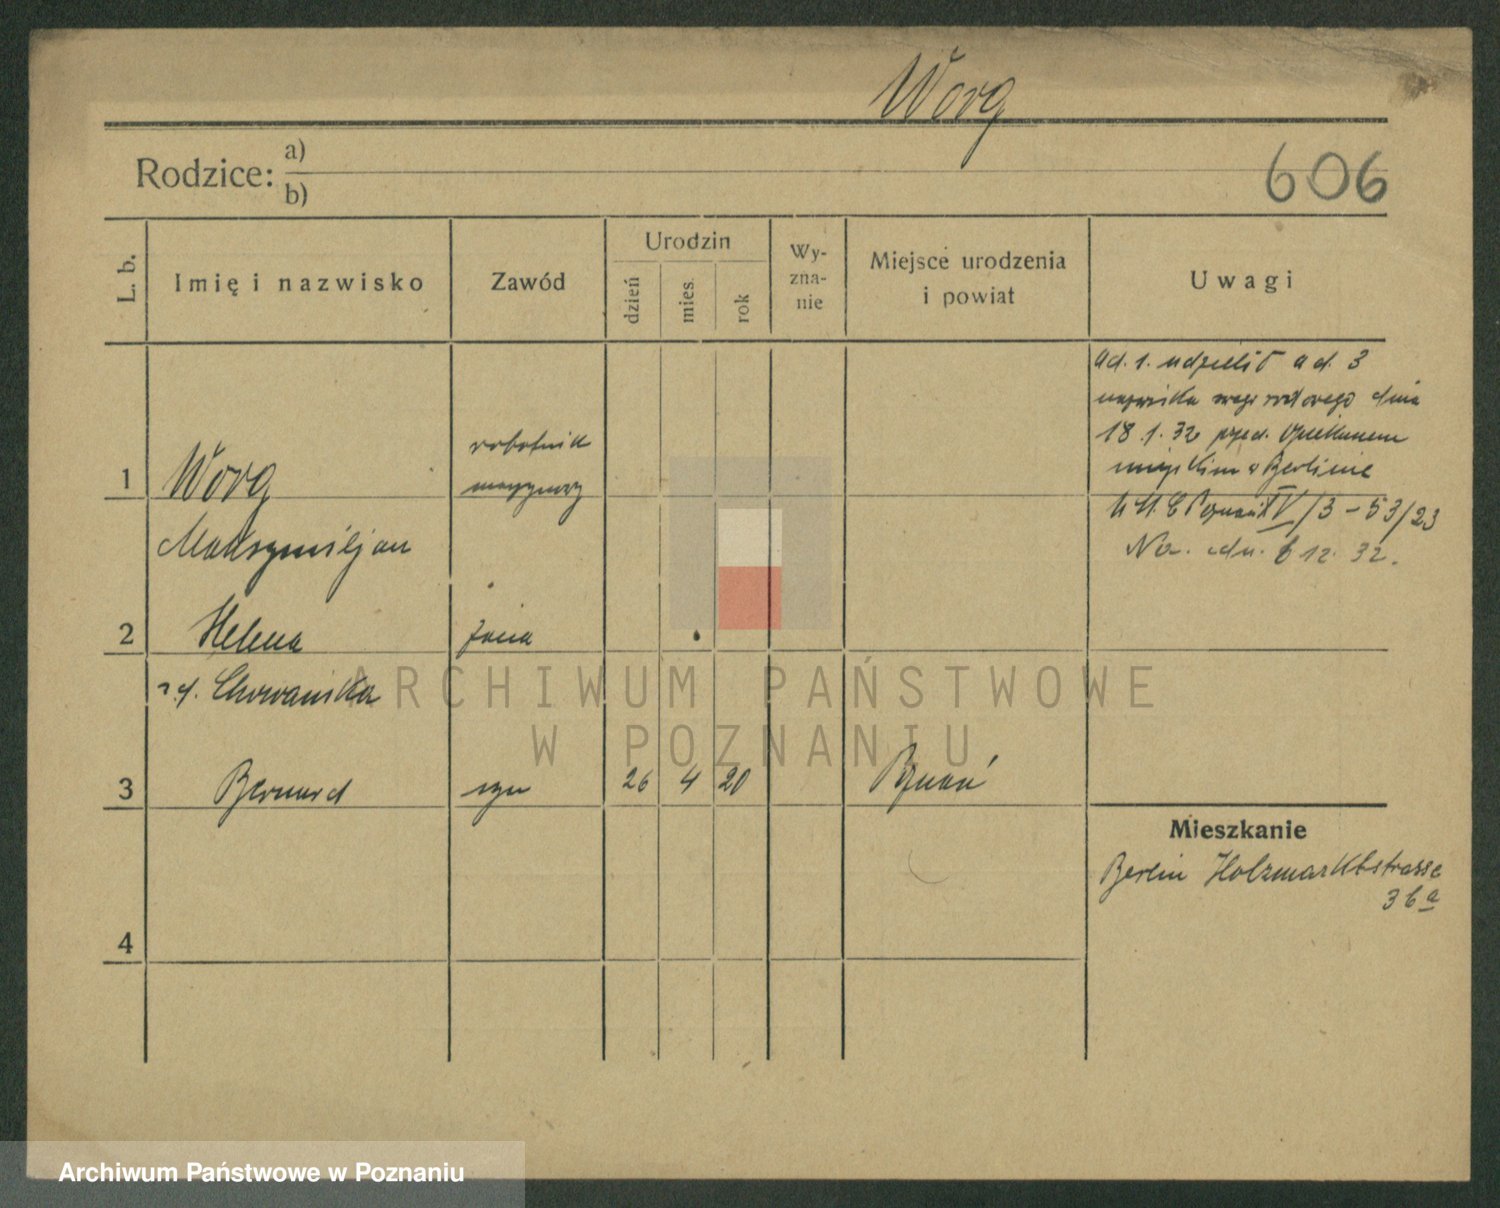 Worg
Rodzice: a)
b)
606
L. b.
Imię i nazwisko
Zawód
Urodzin
dzień
mies.
rok
Wy-
zna-
nie
Miejsce urodzenia
i powiat
Uwagi
ad. 1. udzielił ad. 3
nazwiska swego rodowego dnia
18.1.32 przed. Opiekunem
miejskim w Berlinie
Poznań IV/3-53/23
dn. 6 12. 32.
1
Worg
robotnik
Maksymiljan
2
Helena
żona
Chowańska
3
Bernard
syn
26 4 20
Poznań
Mieszkanie
Berlin Holzmarktstrasse
36a
4
ARCHIWUM PAŃSTWOWE
W POZNANIU
Archiwum Państwowe w Poznaniu